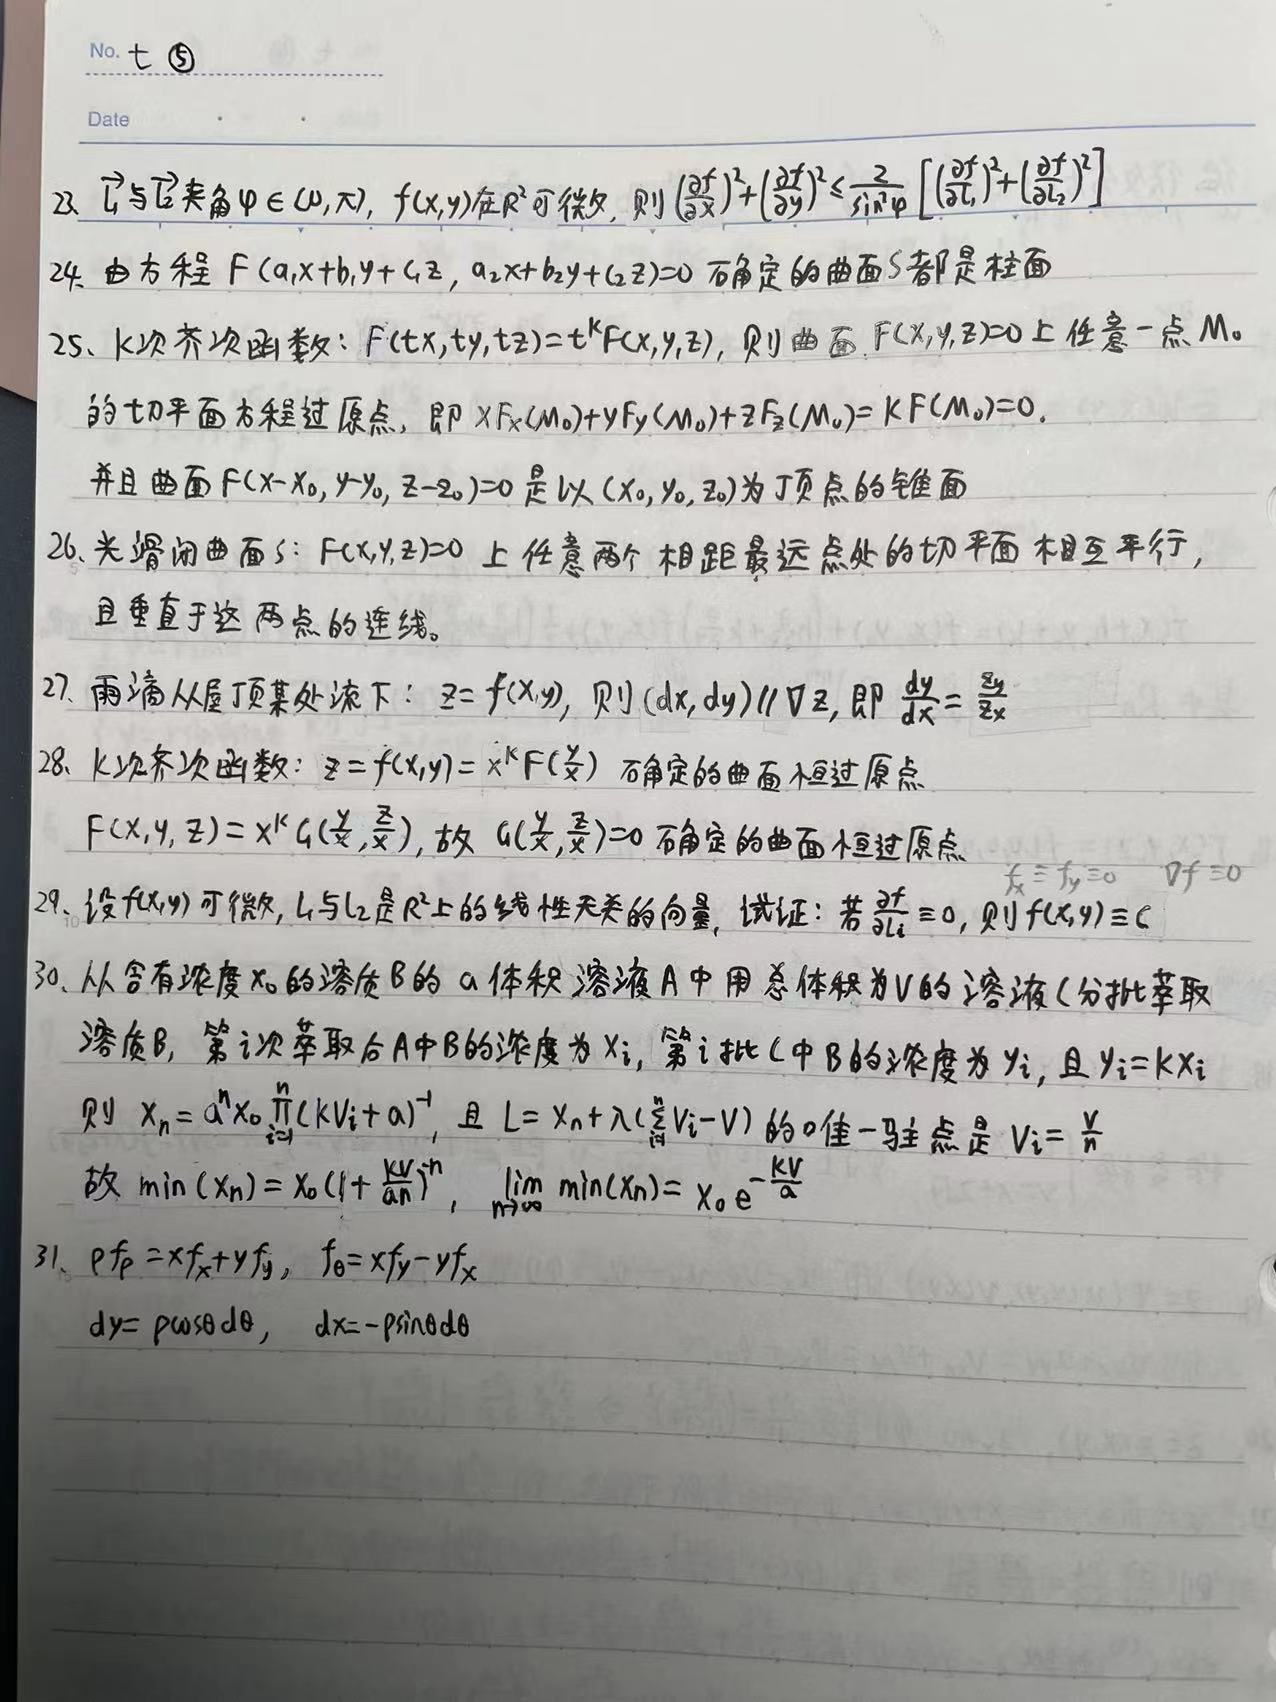 No. 七 ⑤
Date
23、L₁与L₂夹角φ∈(0,π), f(x,y)在R²可微, 则(∂f/∂x)²+(∂f/∂y)²≤2/sin²φ[(∂f/∂L₁)²+(∂f/∂L₂)²]
24、由方程 F(a₁x+b₁y+c₁z, a₂x+b₂y+c₂z)=0 确定的曲面S都是柱面
25、K次齐次函数: F(tx,ty,tz)=tᴷF(x,y,z), 则曲面 F(x,y,z)=0上任意一点M₀
的切平面方程过原点, 即 xFx(M₀)+yFy(M₀)+zFz(M₀)=KF(M₀)=0.
并且曲面F(x-x₀, y-y₀, z-z₀)=0是以(x₀,y₀,z₀)为顶点的锥面
26、光滑闭曲面S: F(x,y,z)=0 上任意两个相距最远点处的切平面相互平行,
且垂直于这两点的连线。
27、雨滴从屋顶某处流下: z=f(x,y), 则(dx,dy)//∇z, 即 dy/dx=zy/zx
28、K次齐次函数: z=f(x,y)=xᴷF(y/x) 确定的曲面恒过原点
F(x,y,z)=xᴷG(y/x,z/x), 故 G(y/x,z/x)=0 确定的曲面恒过原点
fx≡fy≡0 ∇f≡0
29、设f(x,y)可微, L₁与L₂是R²上的线性无关的向量, 试证: 若∂f/∂Li≡0, 则f(x,y)≡C
30、从含有浓度x₀的溶质B的a体积溶液A中用总体积为V的溶液C分批萃取
溶质B, 第i次萃取后A中B的浓度为xi, 第i批C中B的浓度为yi, 且yi=Kxi
则 xn=aⁿx₀∏ⁿᵢ₌₁(KVi+a)⁻¹, 且 L=xn+λ(∑ⁿᵢ₌₁Vi-V)的唯一驻点是 Vi=V/n
故 min(xn)=x₀(1+KV/an)⁻ⁿ, lim n→∞ min(xn)=x₀e^(-KV/a)
31、ρfρ=xfx+yfy, fθ=xfy-yfx
dy=ρcosθdθ, dx=-ρsinθdθ